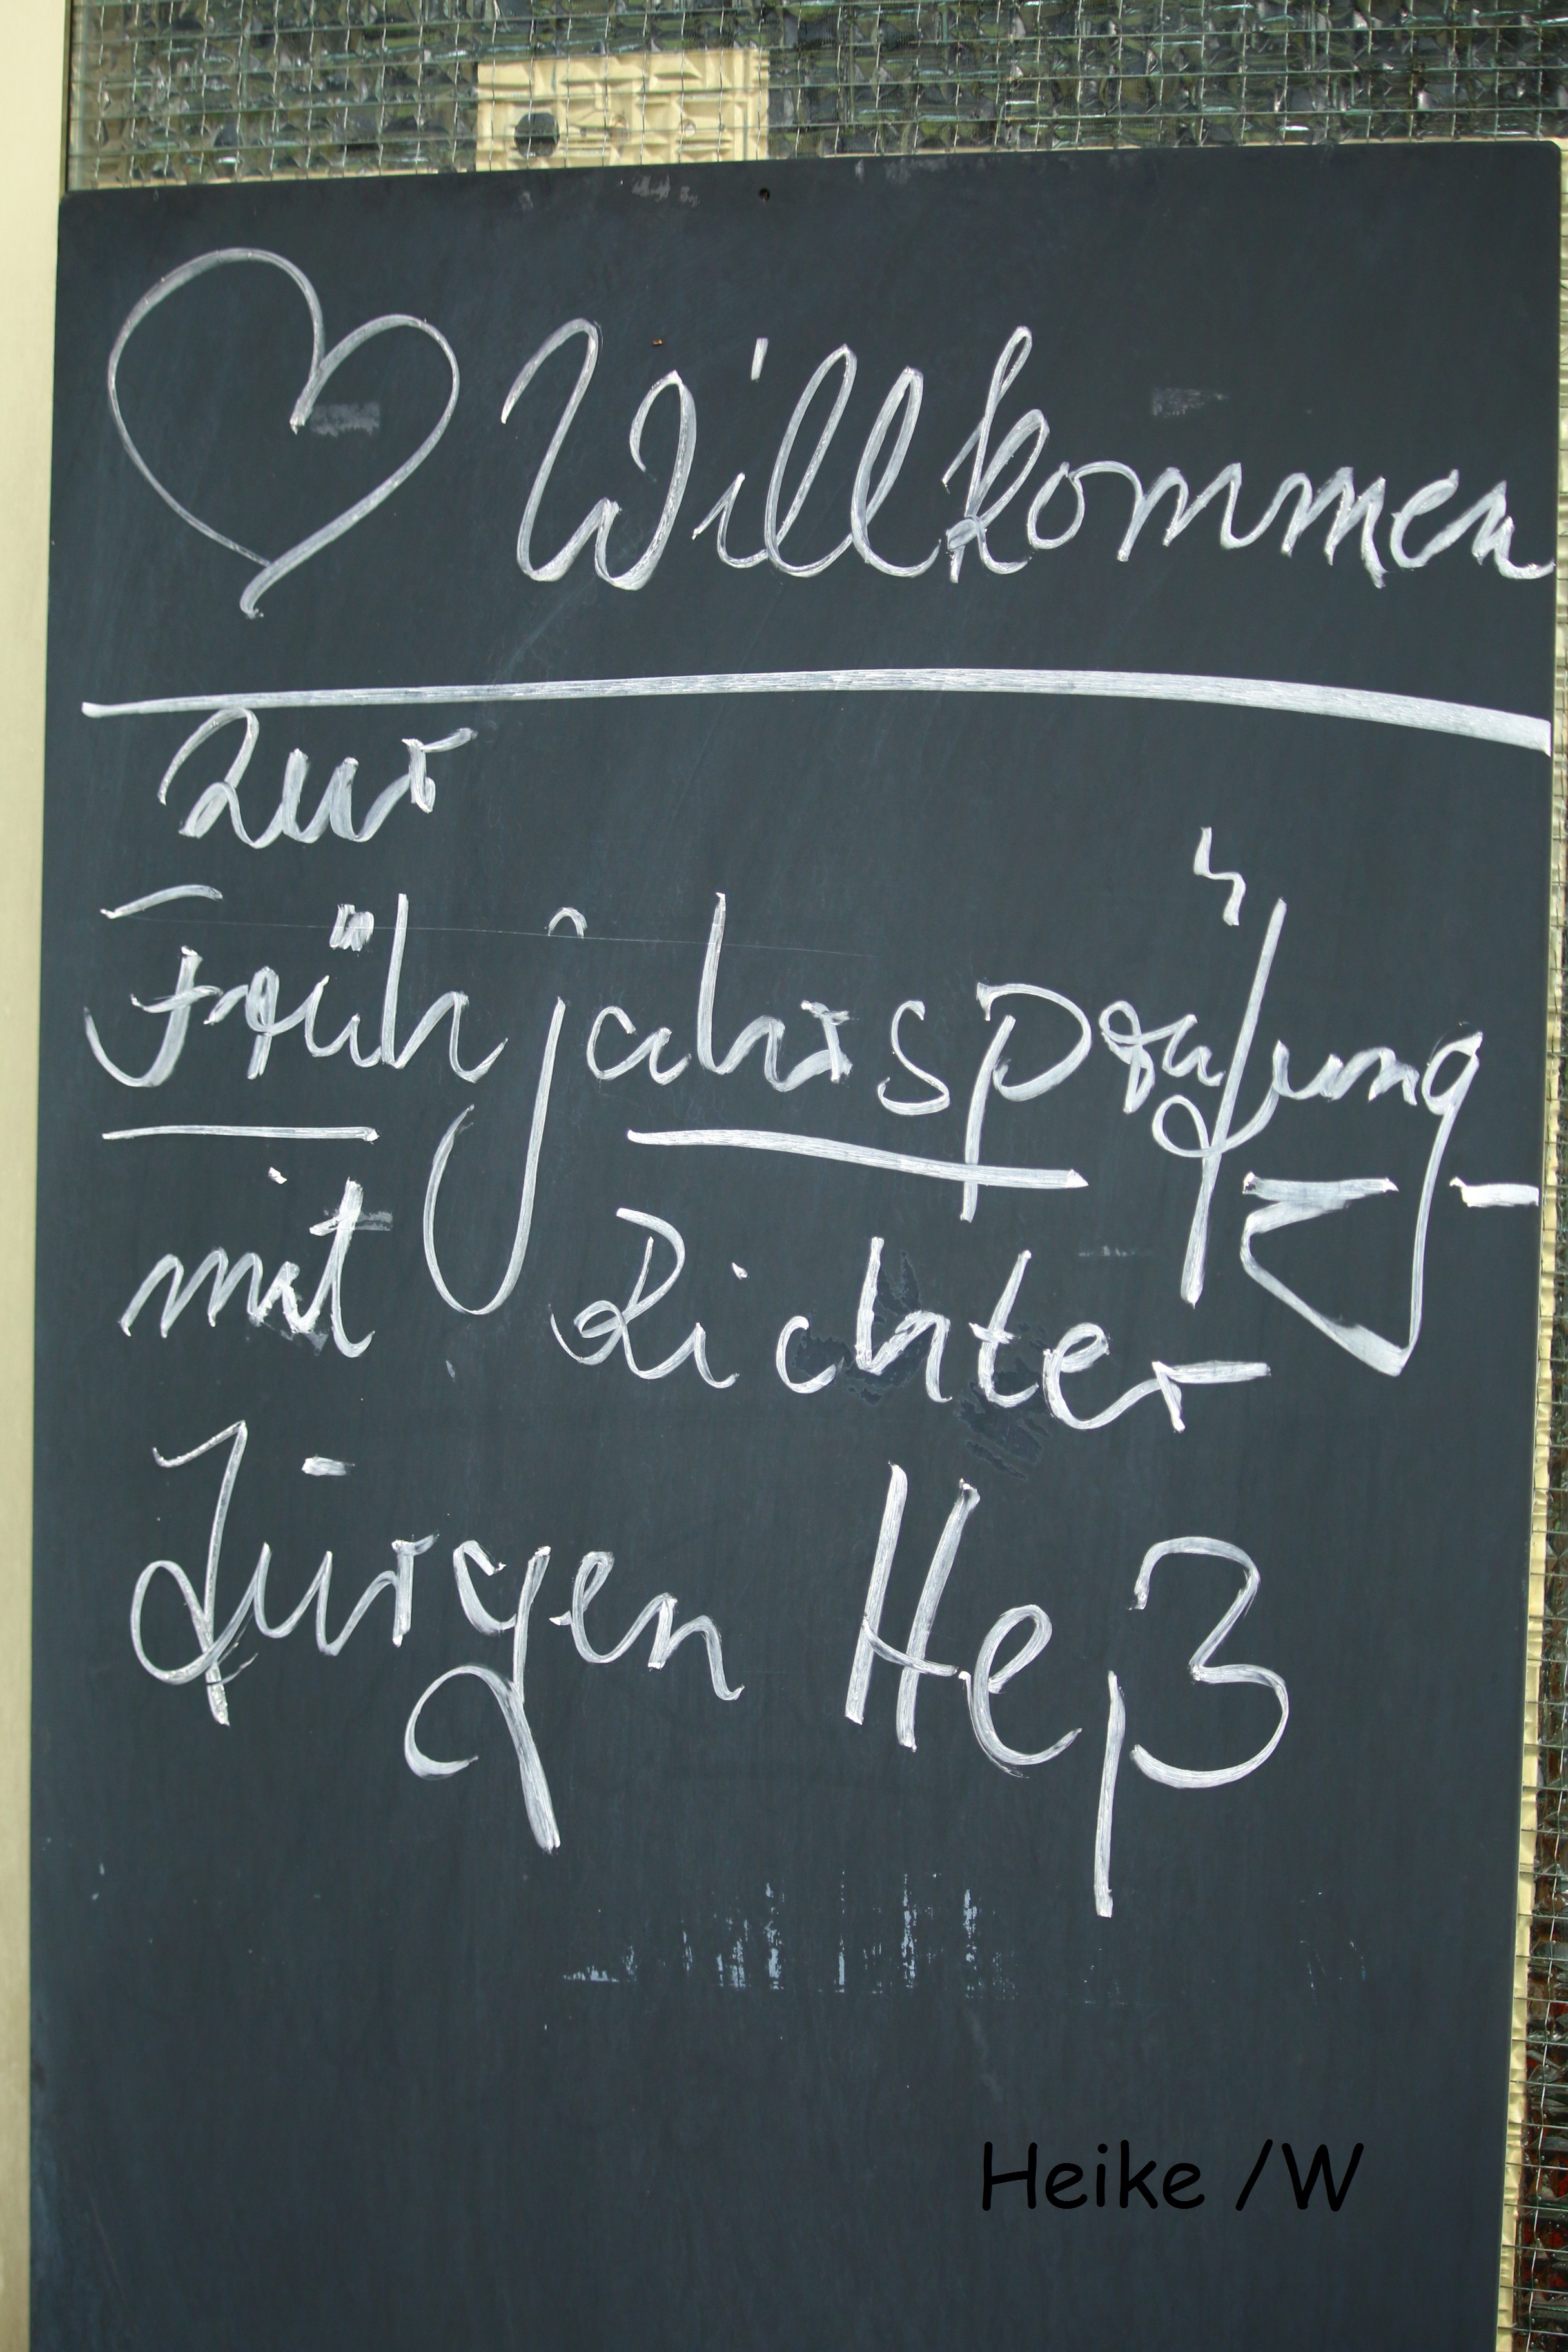 Willkommen
zur
Frühjahrsprüfung
mit Richter
Jürgen Heß
Heike /W